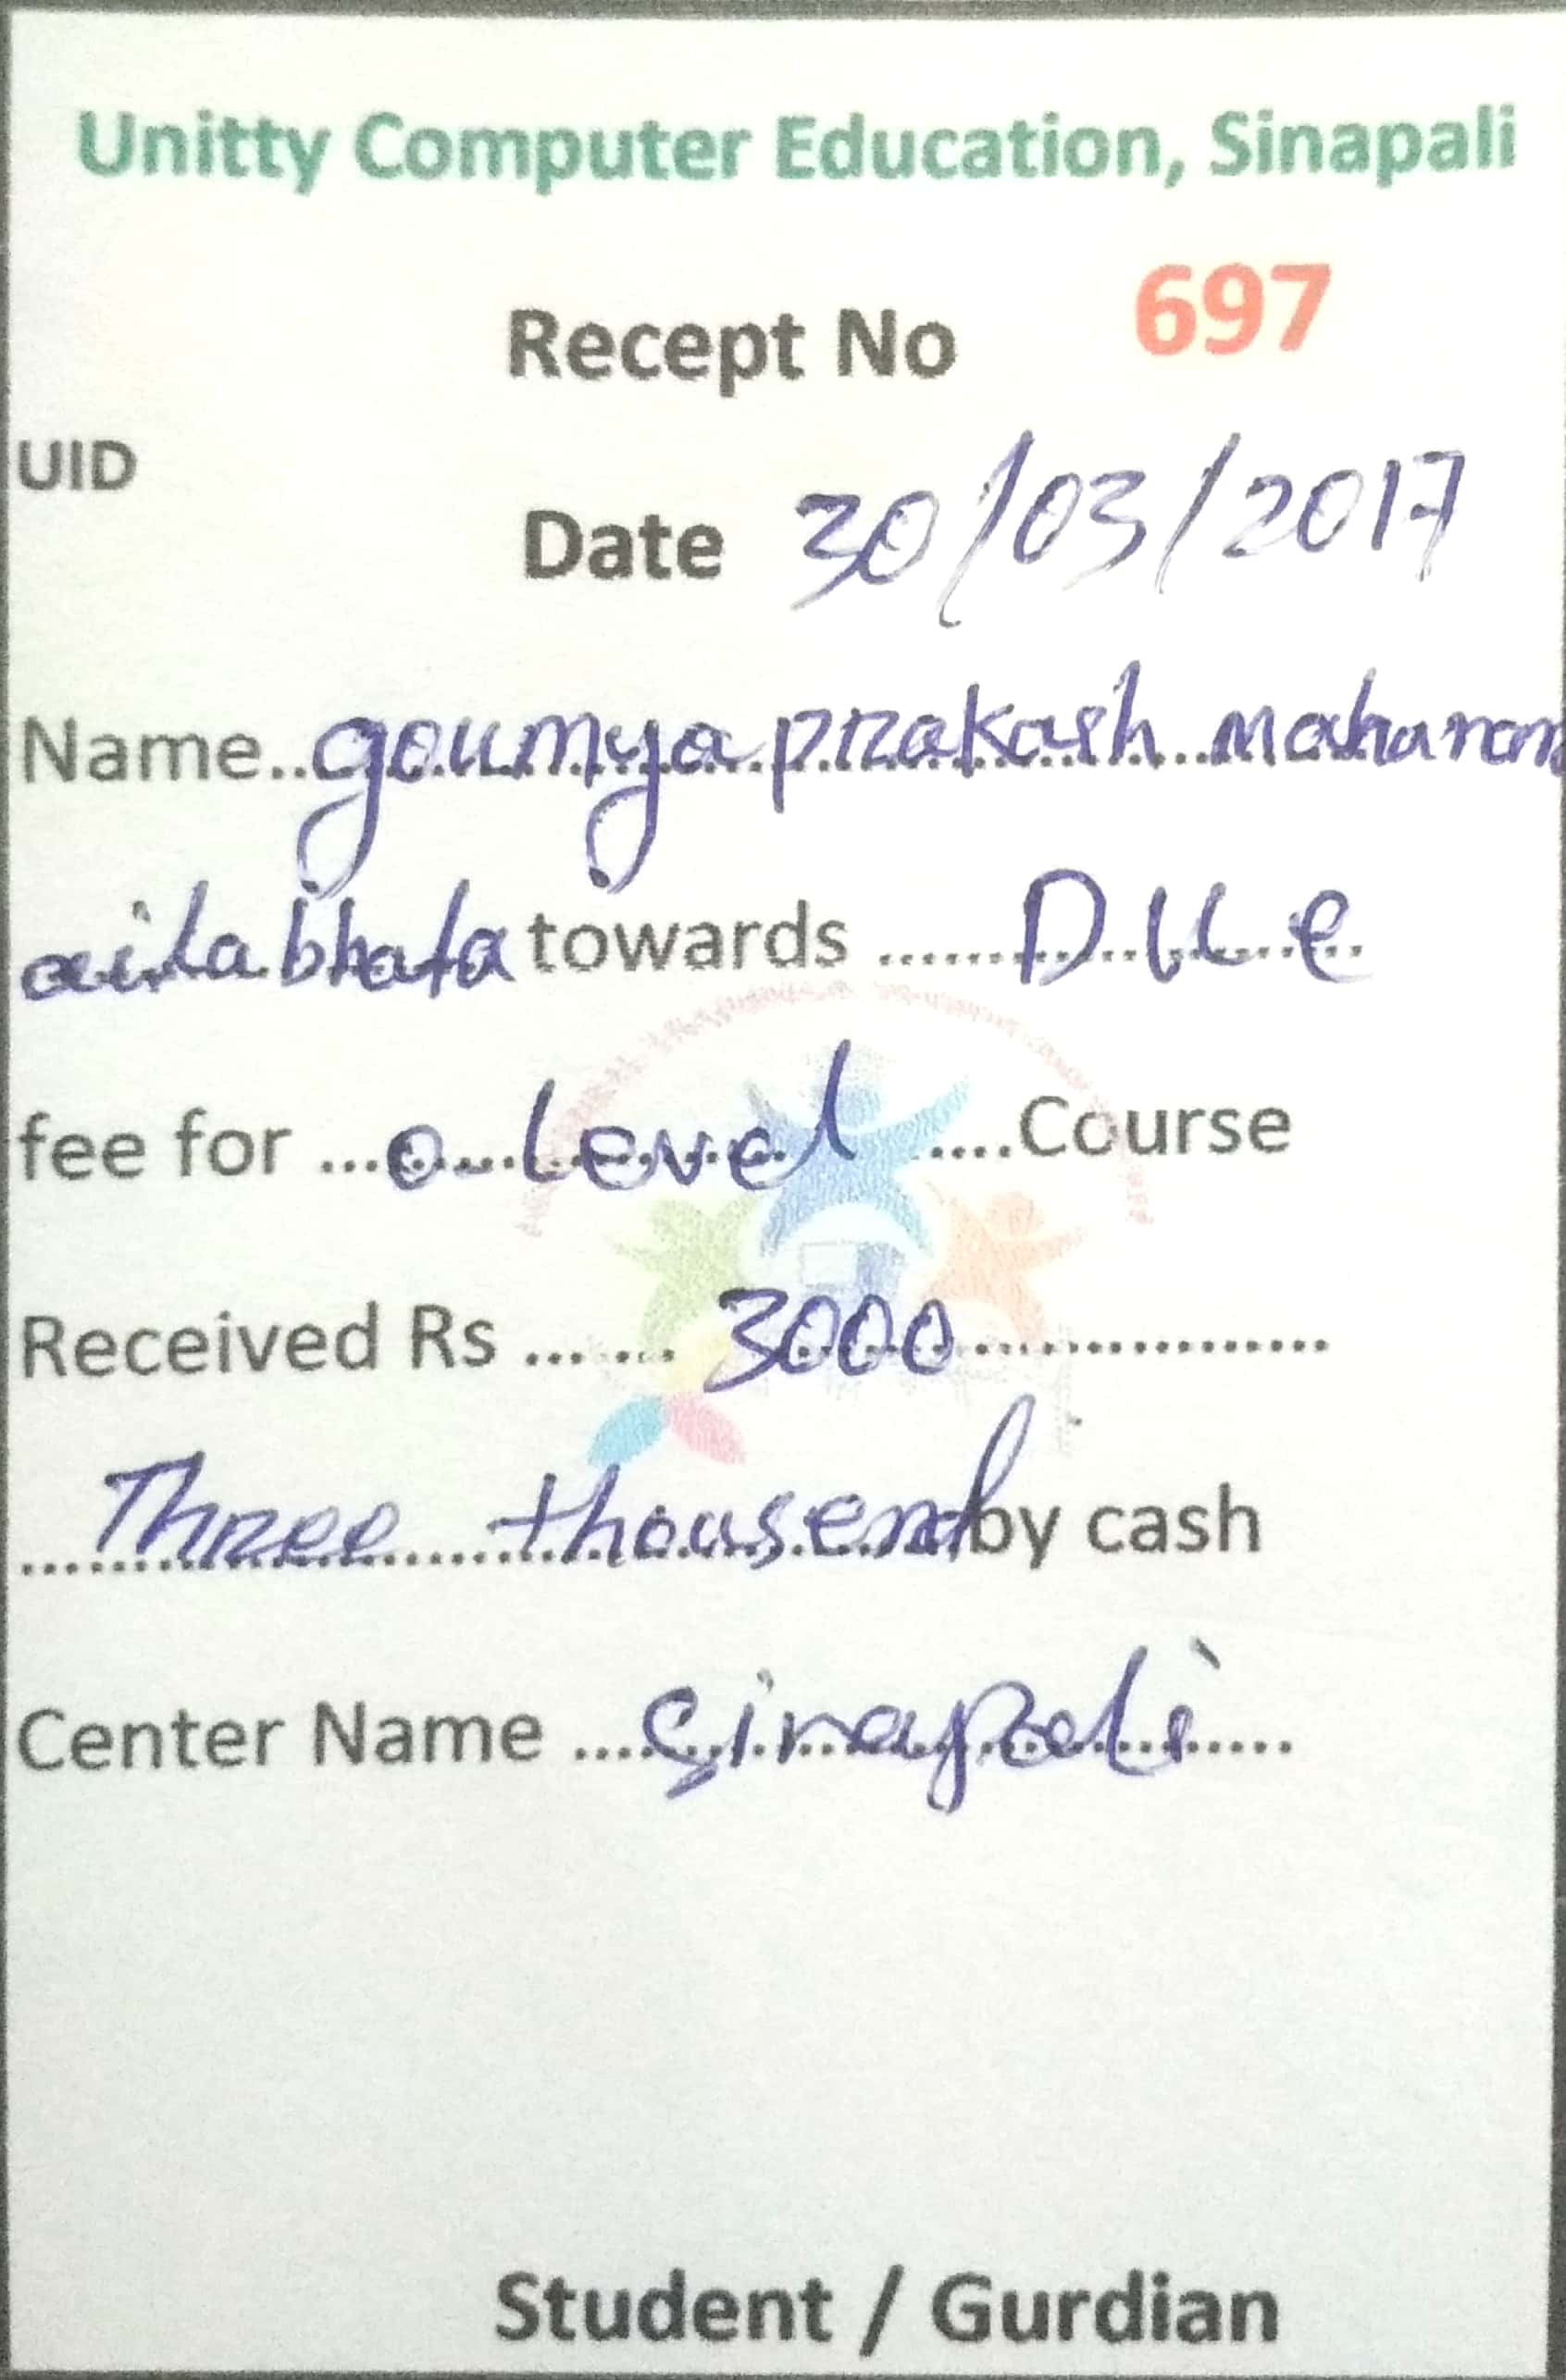 Unitty Computer Education, Sinapali
Recept No 697
UID
Date 30/03/2017
Name..goumya prakash maharana
aitabhata towards ........ Due
fee for ....o-level ....Course
Received Rs ...... 3000
Three thousend by cash
Center Name ....Sinapali
Student / Gurdian